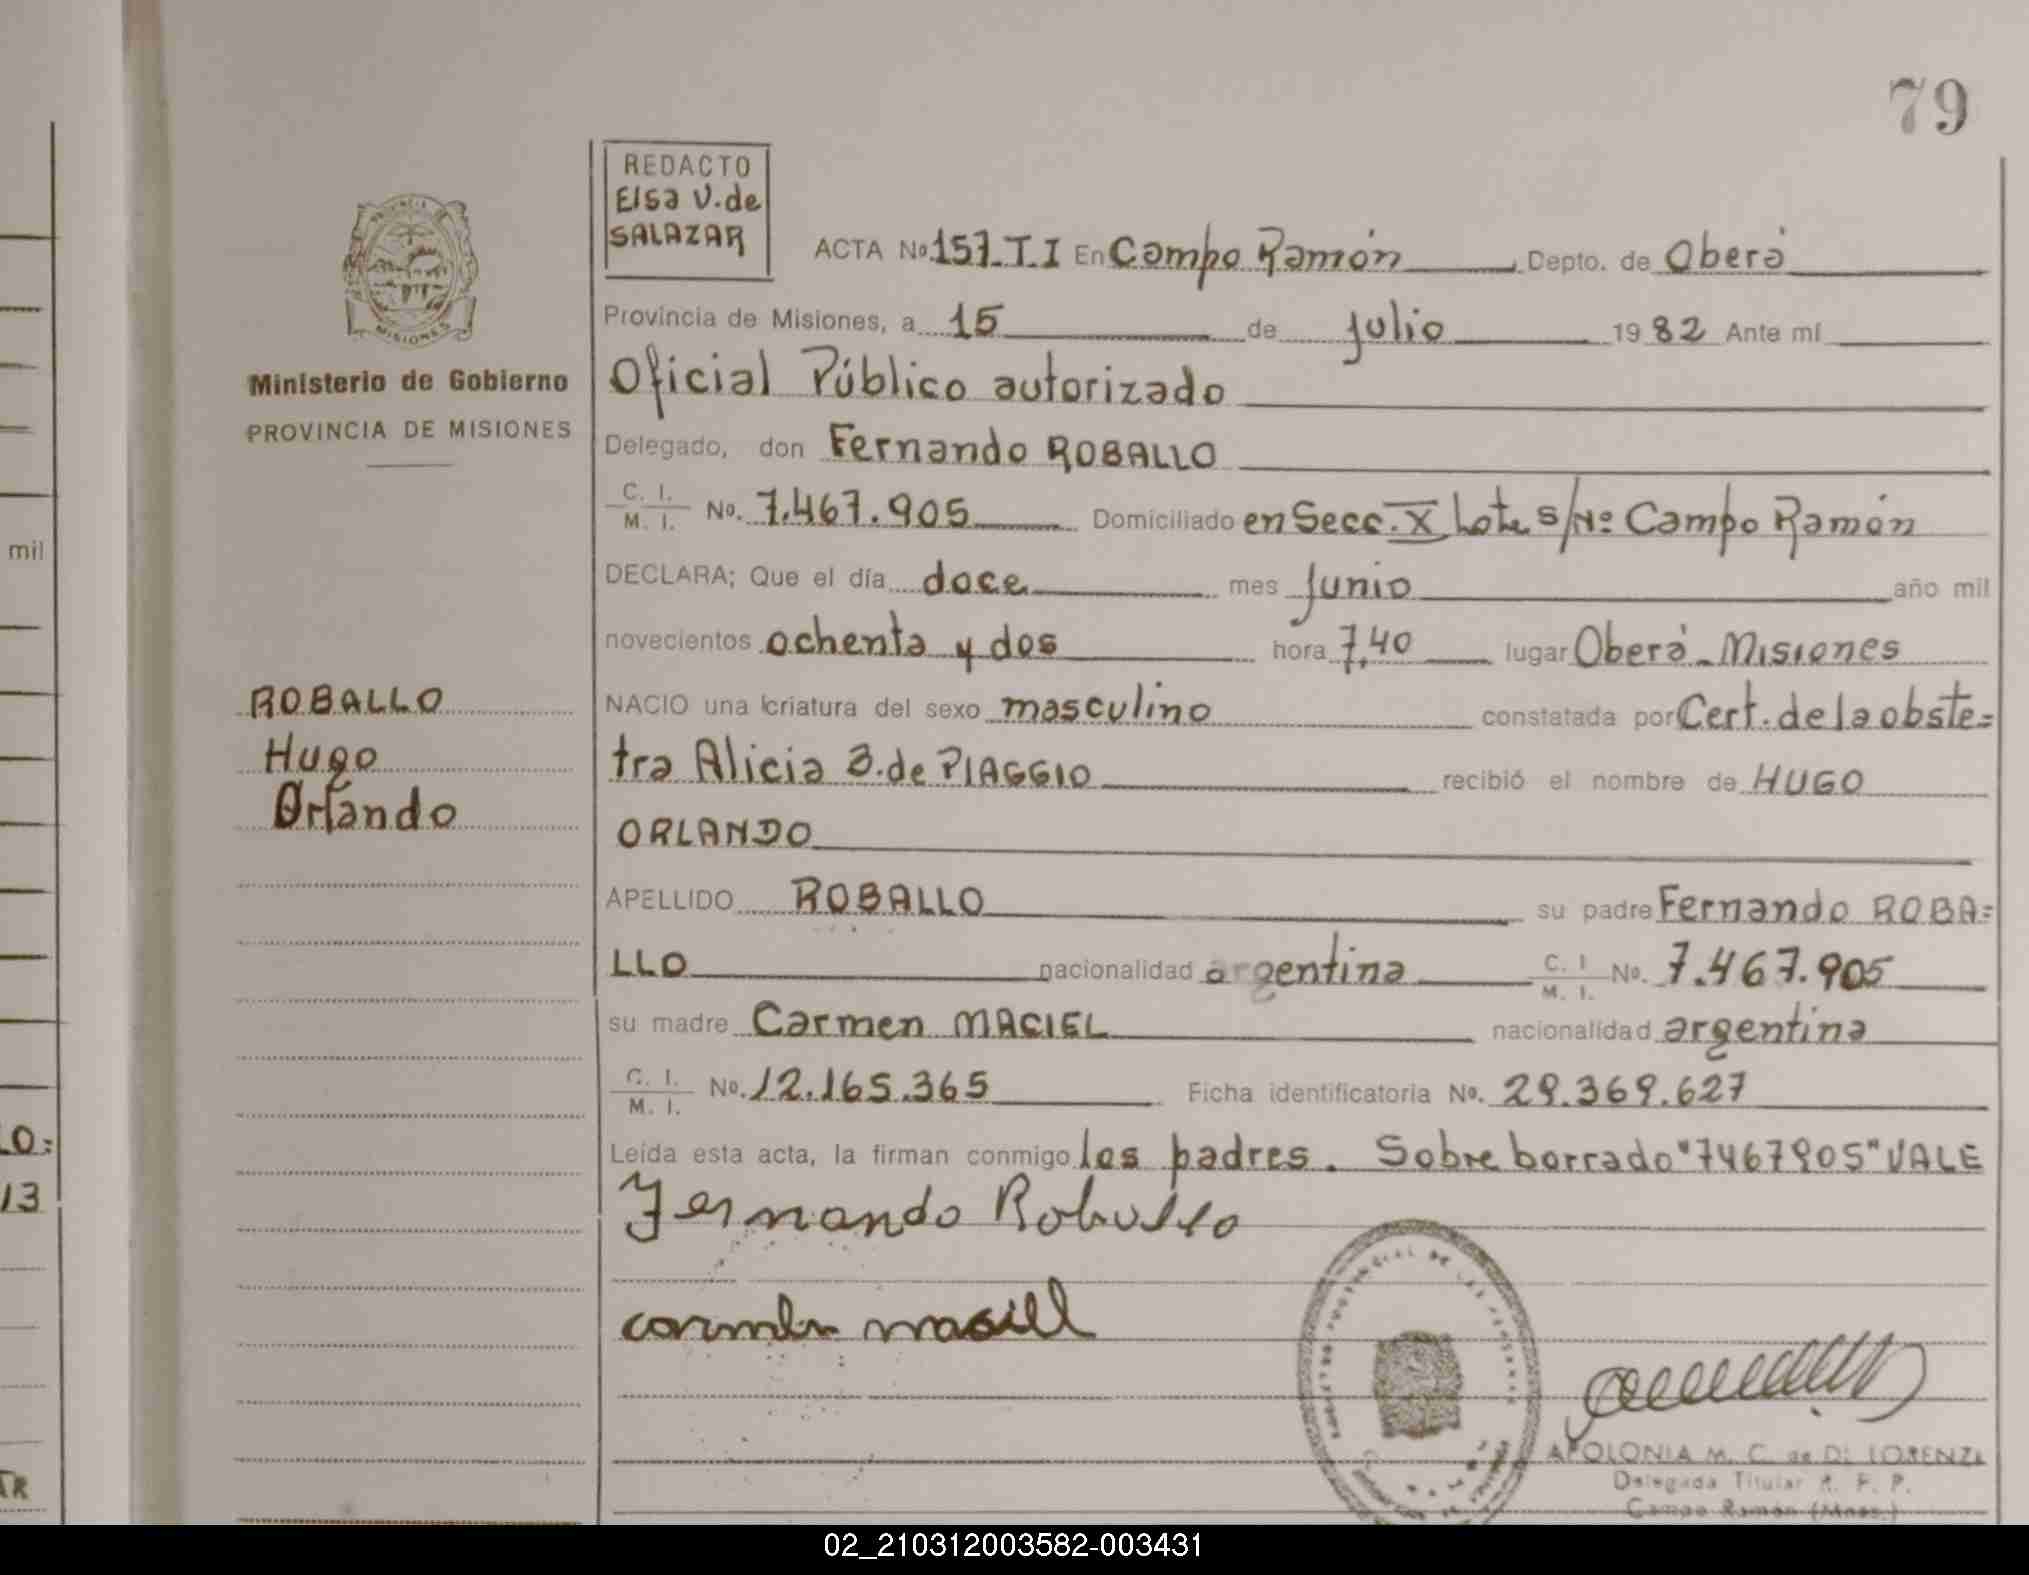 79
REDACTO
Elsa V. de
SALAZAR
PROVINCIA DE
MISIONES
Ministerio de Gobierno
PROVINCIA DE MISIONES
ACTA No. 157_T.I En Campo Ramón Depto. de Oberá
Provincia de Misiones, a 15 de julio 1982 Ante mí
Oficial Público autorizado
Delegado, don Fernando ROBALLO
C. I.
M. I. No. 7.467.905 Domiciliado en Secc. X Lote s/Nº Campo Ramón
mil
DECLARA; Que el día doce mes Junio año mil
novecientos ochenta y dos hora 7,40 lugar Oberá - Misiones
ROBALLO
Hugo
Orlando
NACIO una criatura del sexo masculino constatada por Cert. de la obste=
tra Alicia Z. de PIAGGIO recibió el nombre de HUGO
ORLANDO
APELLIDO ROBALLO su padre Fernando ROBA=
LLO nacionalidad argentina C. I. M. I. No. 7.467.905
su madre Carmen MACIEL nacionalidad argentina
C. I.
M. I. No. 12.165.365 Ficha identificatoria No. 29.369.627
LO=
13
Leída esta acta, la firman conmigo los padres. Sobre borrado "7467905" VALE
Fernando Roballo
carmen maciell
APOLONIA M. C. de DI LORENZI
Delegada Titular R. P. P.
Campo Ramón (Mnes.)
02_210312003582-003431